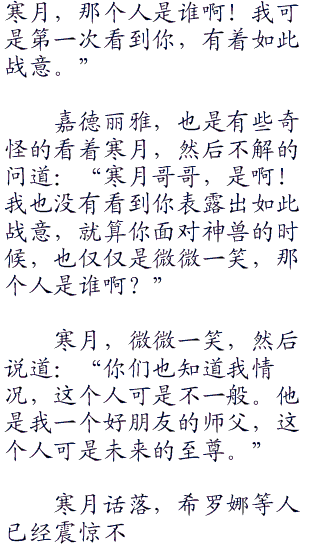 寒月，那个人是谁啊！我可
是第一次看到你，有着如此
战意。”
嘉德丽雅，也是有些奇
怪的看着寒月，然后不解的
问道：“寒月哥哥，是啊！
我也没有看到你表露出如此
战意，就算你面对神兽的时
候，也仅仅是微微一笑，那
个人是谁啊？”
寒月，微微一笑，然后
说道：“你们也知道我情
况，这个人可是不一般。他
是我一个好朋友的师父，这
个人可是未来的至尊。”
寒月话落，希罗娜等人
已经震惊不